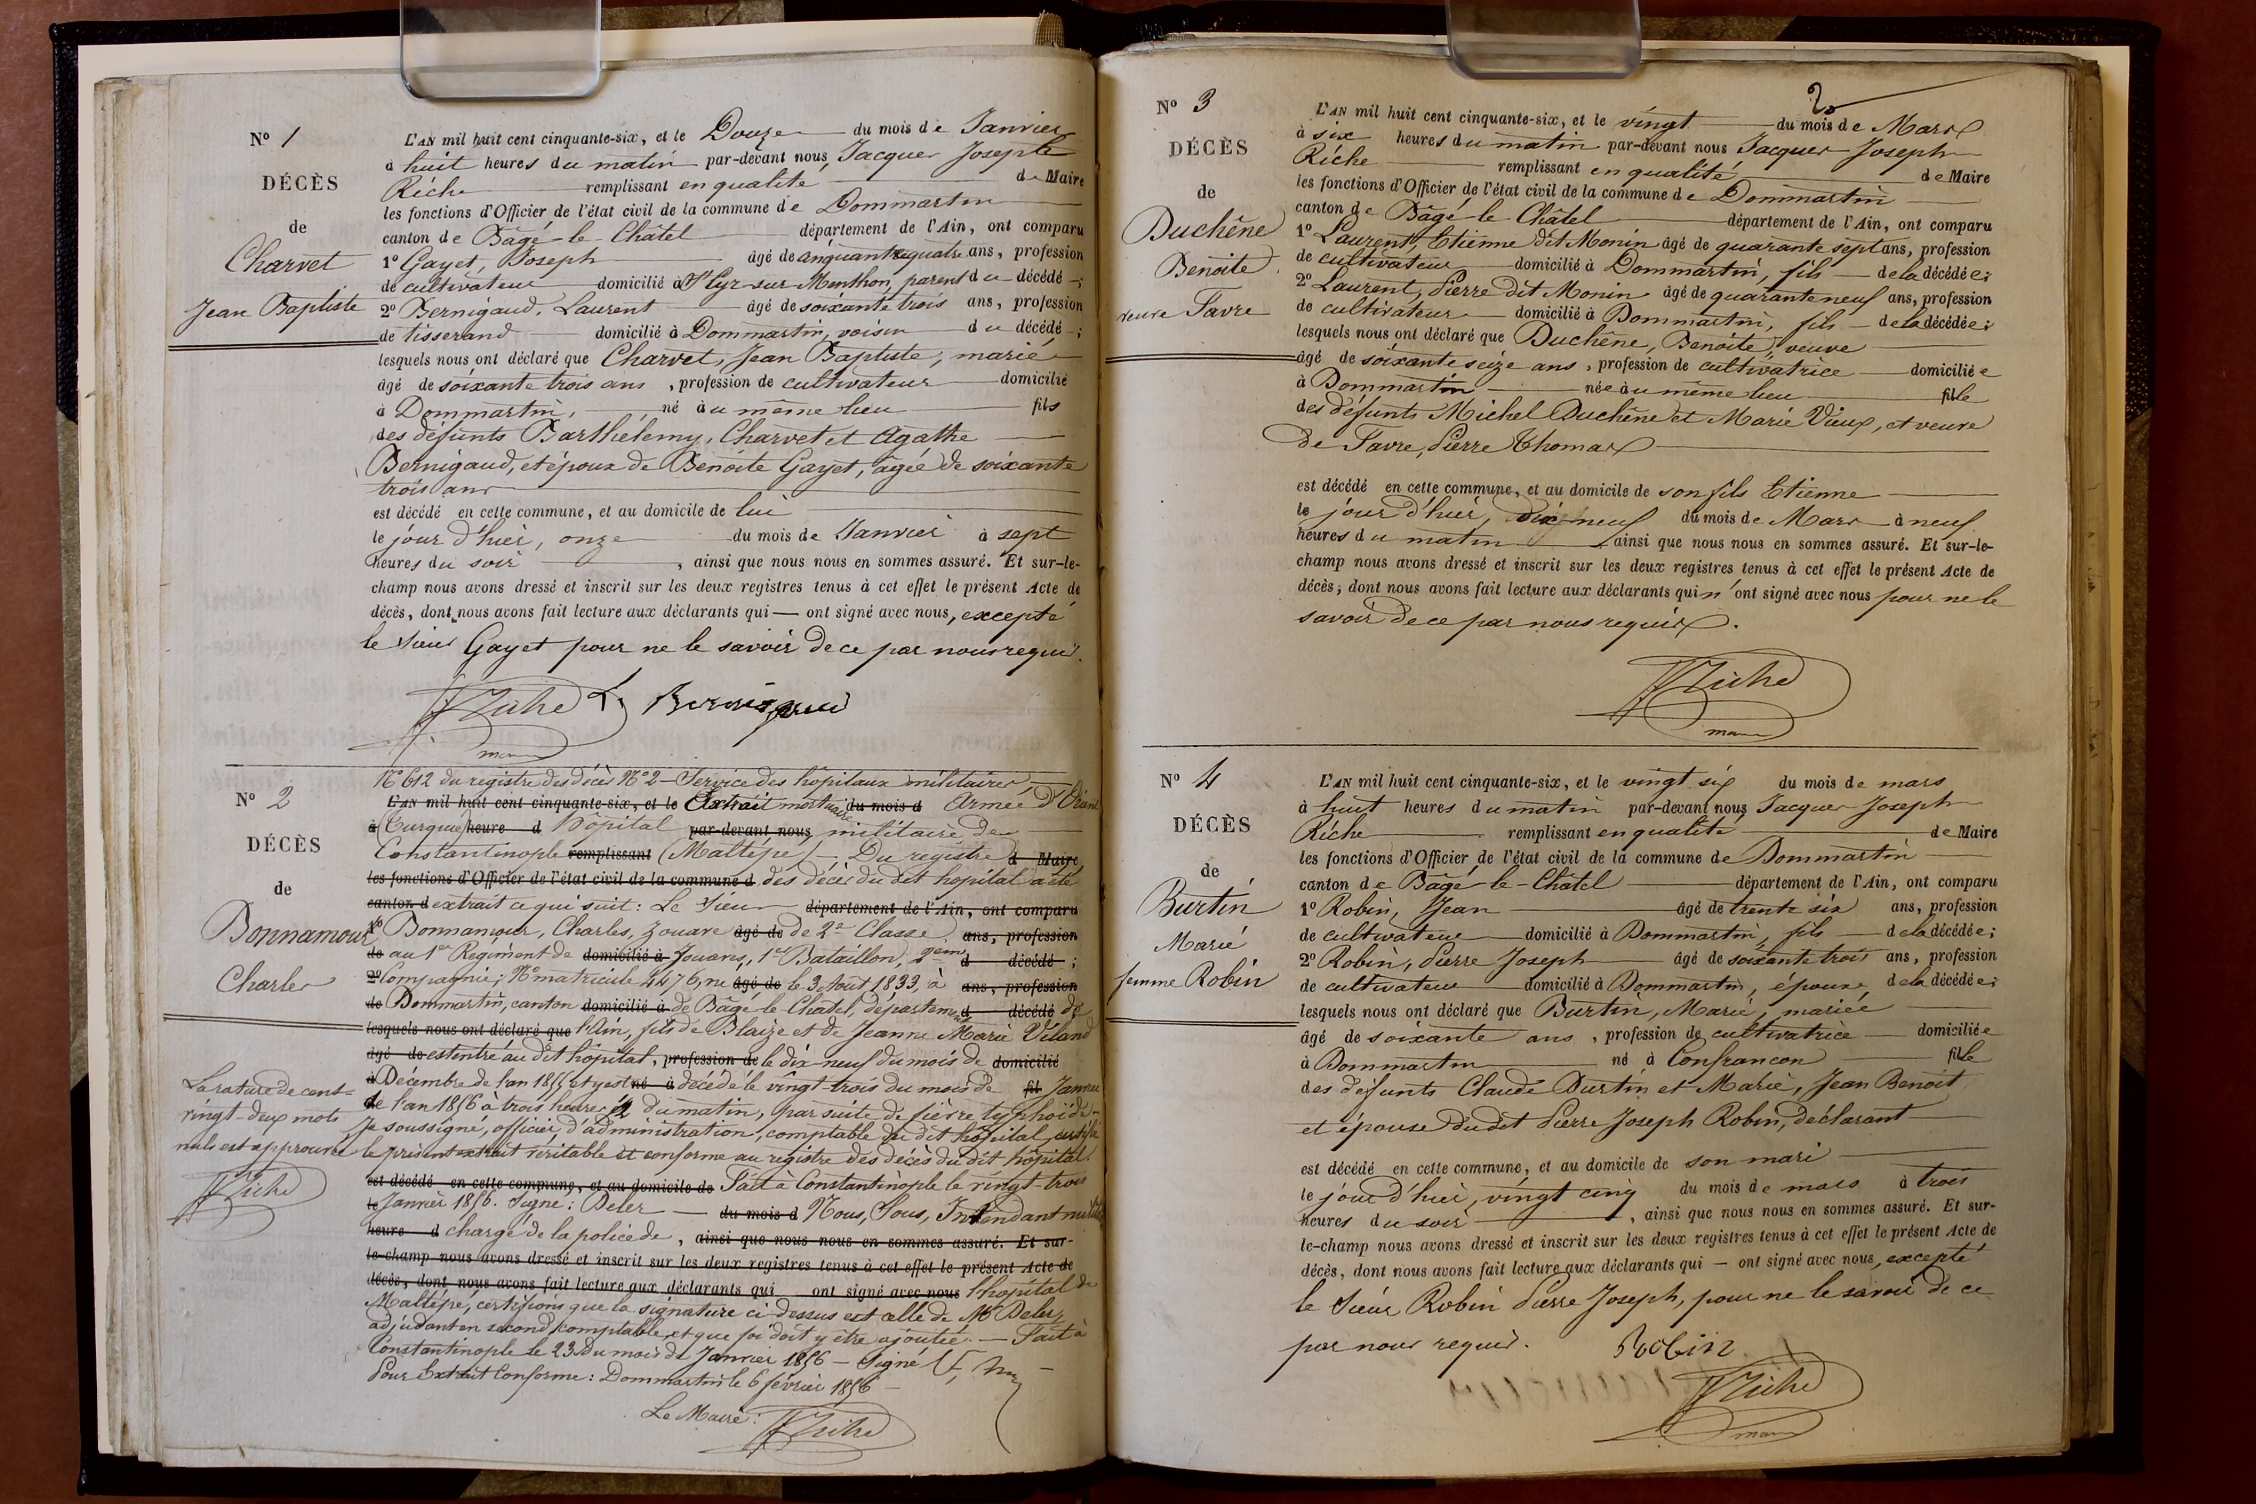 N° 1
DÉCÈS
de
Charvet
Jean Baptiste
L'AN mil huit cent cinquante-six, et le Douze du mois de Janvier
à huit heures du matin par-devant nous Jacques Joseph
Riche remplissant en qualité de Maire
les fonctions d'Officier de l'état civil de la commune de Dommartin
canton de Bâgé-le-Châtel département de l'Ain, ont comparu
1° Gayet, Joseph âgé de cinquante quatre ans, profession
de cultivateur domicilié à St Cyr-sur-Menthon, parent du décédé ;
2° Bernigaud, Laurent âgé de soixante trois ans, profession
de tisserand domicilié à Dommartin, voisin du décédé ;
lesquels nous ont déclaré que Charvet, Jean Baptiste, marié
âgé de soixante trois ans, profession de cultivateur domicilié
à Dommartin, né au même lieu fils
des défunts Barthélemy Charvet et Agathe
Bernigaud, et époux de Benoite Gayet, âgée de soixante
trois ans
est décédé en cette commune, et au domicile de lui
le jour d'hier, onze du mois de Janvier à sept
heures du soir, ainsi que nous nous en sommes assuré. Et sur-le-
champ nous avons dressé et inscrit sur les deux registres tenus à cet effet le présent Acte de
décès, dont nous avons fait lecture aux déclarants qui ont signé avec nous, excepté
le sieur Gayet pour ne le savoir de ce par nous requis.
JJ Riche L. Bernigaud
maire
N° 2
DÉCÈS
de
Bonnamour
Charles
La rature de cent-
vingt-deux mots
nuls est approuvée
JJ Riche
N° 612 du registre des décès N° 2 - Service des hôpitaux militaires,
L'AN mil huit cent cinquante-six, et le Extrait mortuaire du mois d Armée d'Orient
à (Turquie) heure d Hôpital par-devant nous militaire de
Constantinople remplissant (Maltépé) - Du registre d Maire
les fonctions d'Officier de l'état civil de la commune d des décès du dit hôpital a été
canton d extrait ce qui suit : Le Sieur département de l'Ain, ont comparu
1° Bonnamour, Charles, zouave âgé de de 2e Classe ans, profession
de au 1er Régiment de domicilié à Zouaves, 1er Bataillon, 2eme d décédé ;
2° Compagnie; N° matricule 4476, né âgé de le 3 Août 1833, à ans, profession
de Dommartin, canton domicilié à de Bâgé-le-Châtel, département d décédé de
lesquels nous ont déclaré que l'Ain, fils de Blaize et de Jeanne Marie Véland
âgé de est entré au dit hôpital, profession de le dix neuf du mois de domicilié
à Décembre de l'an 1855 et y est né à décédé le vingt-trois du mois de fil Janvier
de l'an 1856 à trois heures ½ du matin, par suite de fièvre typhoïde -
Je soussigné, officier d'administration, comptable du dit hôpital certifie
le présent extrait véritable et conforme au registre des décès du dit hôpital
est décédé en cette commune, et au domicile de Fait à Constantinople le vingt-trois
le Janvier 1856. Signé : Deler du mois d Nous, Sous, Intendant militaire
heure d chargé de la police de, ainsi que nous nous en sommes assuré. Et sur-
le-champ nous avons dressé et inscrit sur les deux registres tenus à cet effet le présent Acte de
décès, dont nous avons fait lecture aux déclarants qui ont signé avec nous l'hôpital de
Maltépé, certifions que la signature ci-dessus est celle de Mr Deler,
adjudant en second, comptable, et que foi doit y être ajoutée. - Fait à
Constantinople le 23 du mois de Janvier 1856 - Signé
Pour Extrait Conforme : Dommartin le 6 février 1856 -
Le Maire : JJ Riche
2
N° 3
DÉCÈS
de
Duchêne
Benoite
veuve Favre
L'AN mil huit cent cinquante-six, et le vingt du mois de Mars
à six heures du matin par-devant nous Jacques Joseph
Riche remplissant en qualité de Maire
les fonctions d'Officier de l'état civil de la commune de Dommartin
canton de Bâgé-le-Châtel département de l'Ain, ont comparu
1° Laurent, Etienne dit Monin âgé de quarante sept ans, profession
de cultivateur domicilié à Dommartin, fils de la décédée ;
2° Laurent, Pierre dit Monin âgé de quarante neuf ans, profession
de cultivateur domicilié à Dommartin, fils de la décédée ;
lesquels nous ont déclaré que Duchêne, Benoite, veuve
âgé de soixante seize ans, profession de cultivatrice domiciliée
à Dommartin née au même lieu fille
des défunts Michel Duchêne et Marie Vieux, et veuve
de Favre, Pierre Thomas
est décédé en cette commune, et au domicile de son fils Etienne
le jour d'hier, dix neuf du mois de Mars à neuf
heures du matin ainsi que nous nous en sommes assuré. Et sur-le-
champ nous avons dressé et inscrit sur les deux registres tenus à cet effet le présent Acte de
décès, dont nous avons fait lecture aux déclarants qui n'ont signé avec nous pour ne le
savoir de ce par nous requis.
JJ Riche
maire
N° 4
DÉCÈS
de
Burtin
Marie
femme Robin
L'AN mil huit cent cinquante-six, et le vingt six du mois de mars
à huit heures du matin par-devant nous Jacques Joseph
Riche remplissant en qualité de Maire
les fonctions d'Officier de l'état civil de la commune de Dommartin
canton de Bâgé-le-Châtel département de l'Ain, ont comparu
1° Robin, Jean âgé de trente six ans, profession
de cultivateur domicilié à Dommartin, fils de la décédée ;
2° Robin, Pierre Joseph âgé de soixante trois ans, profession
de cultivateur domicilié à Dommartin, époux de la décédée ;
lesquels nous ont déclaré que Burtin, Marie, mariée
âgé de soixante ans, profession de cultivatrice domiciliée
à Dommartin né à Confrançon fille
des défunts Claude Burtin et Marie, Jean Benoit
et épouse du dit Pierre Joseph Robin, déclarant
est décédé en cette commune, et au domicile de son mari
le jour d'hier, vingt cinq du mois de mars à trois
heures du soir, ainsi que nous nous en sommes assuré. Et sur-
le-champ nous avons dressé et inscrit sur les deux registres tenus à cet effet le présent Acte de
décès, dont nous avons fait lecture aux déclarants qui ont signé avec nous, excepté
le Sieur Robin Pierre Joseph, pour ne le savoir de ce
par nous requis. Robin
JJ Riche
maire